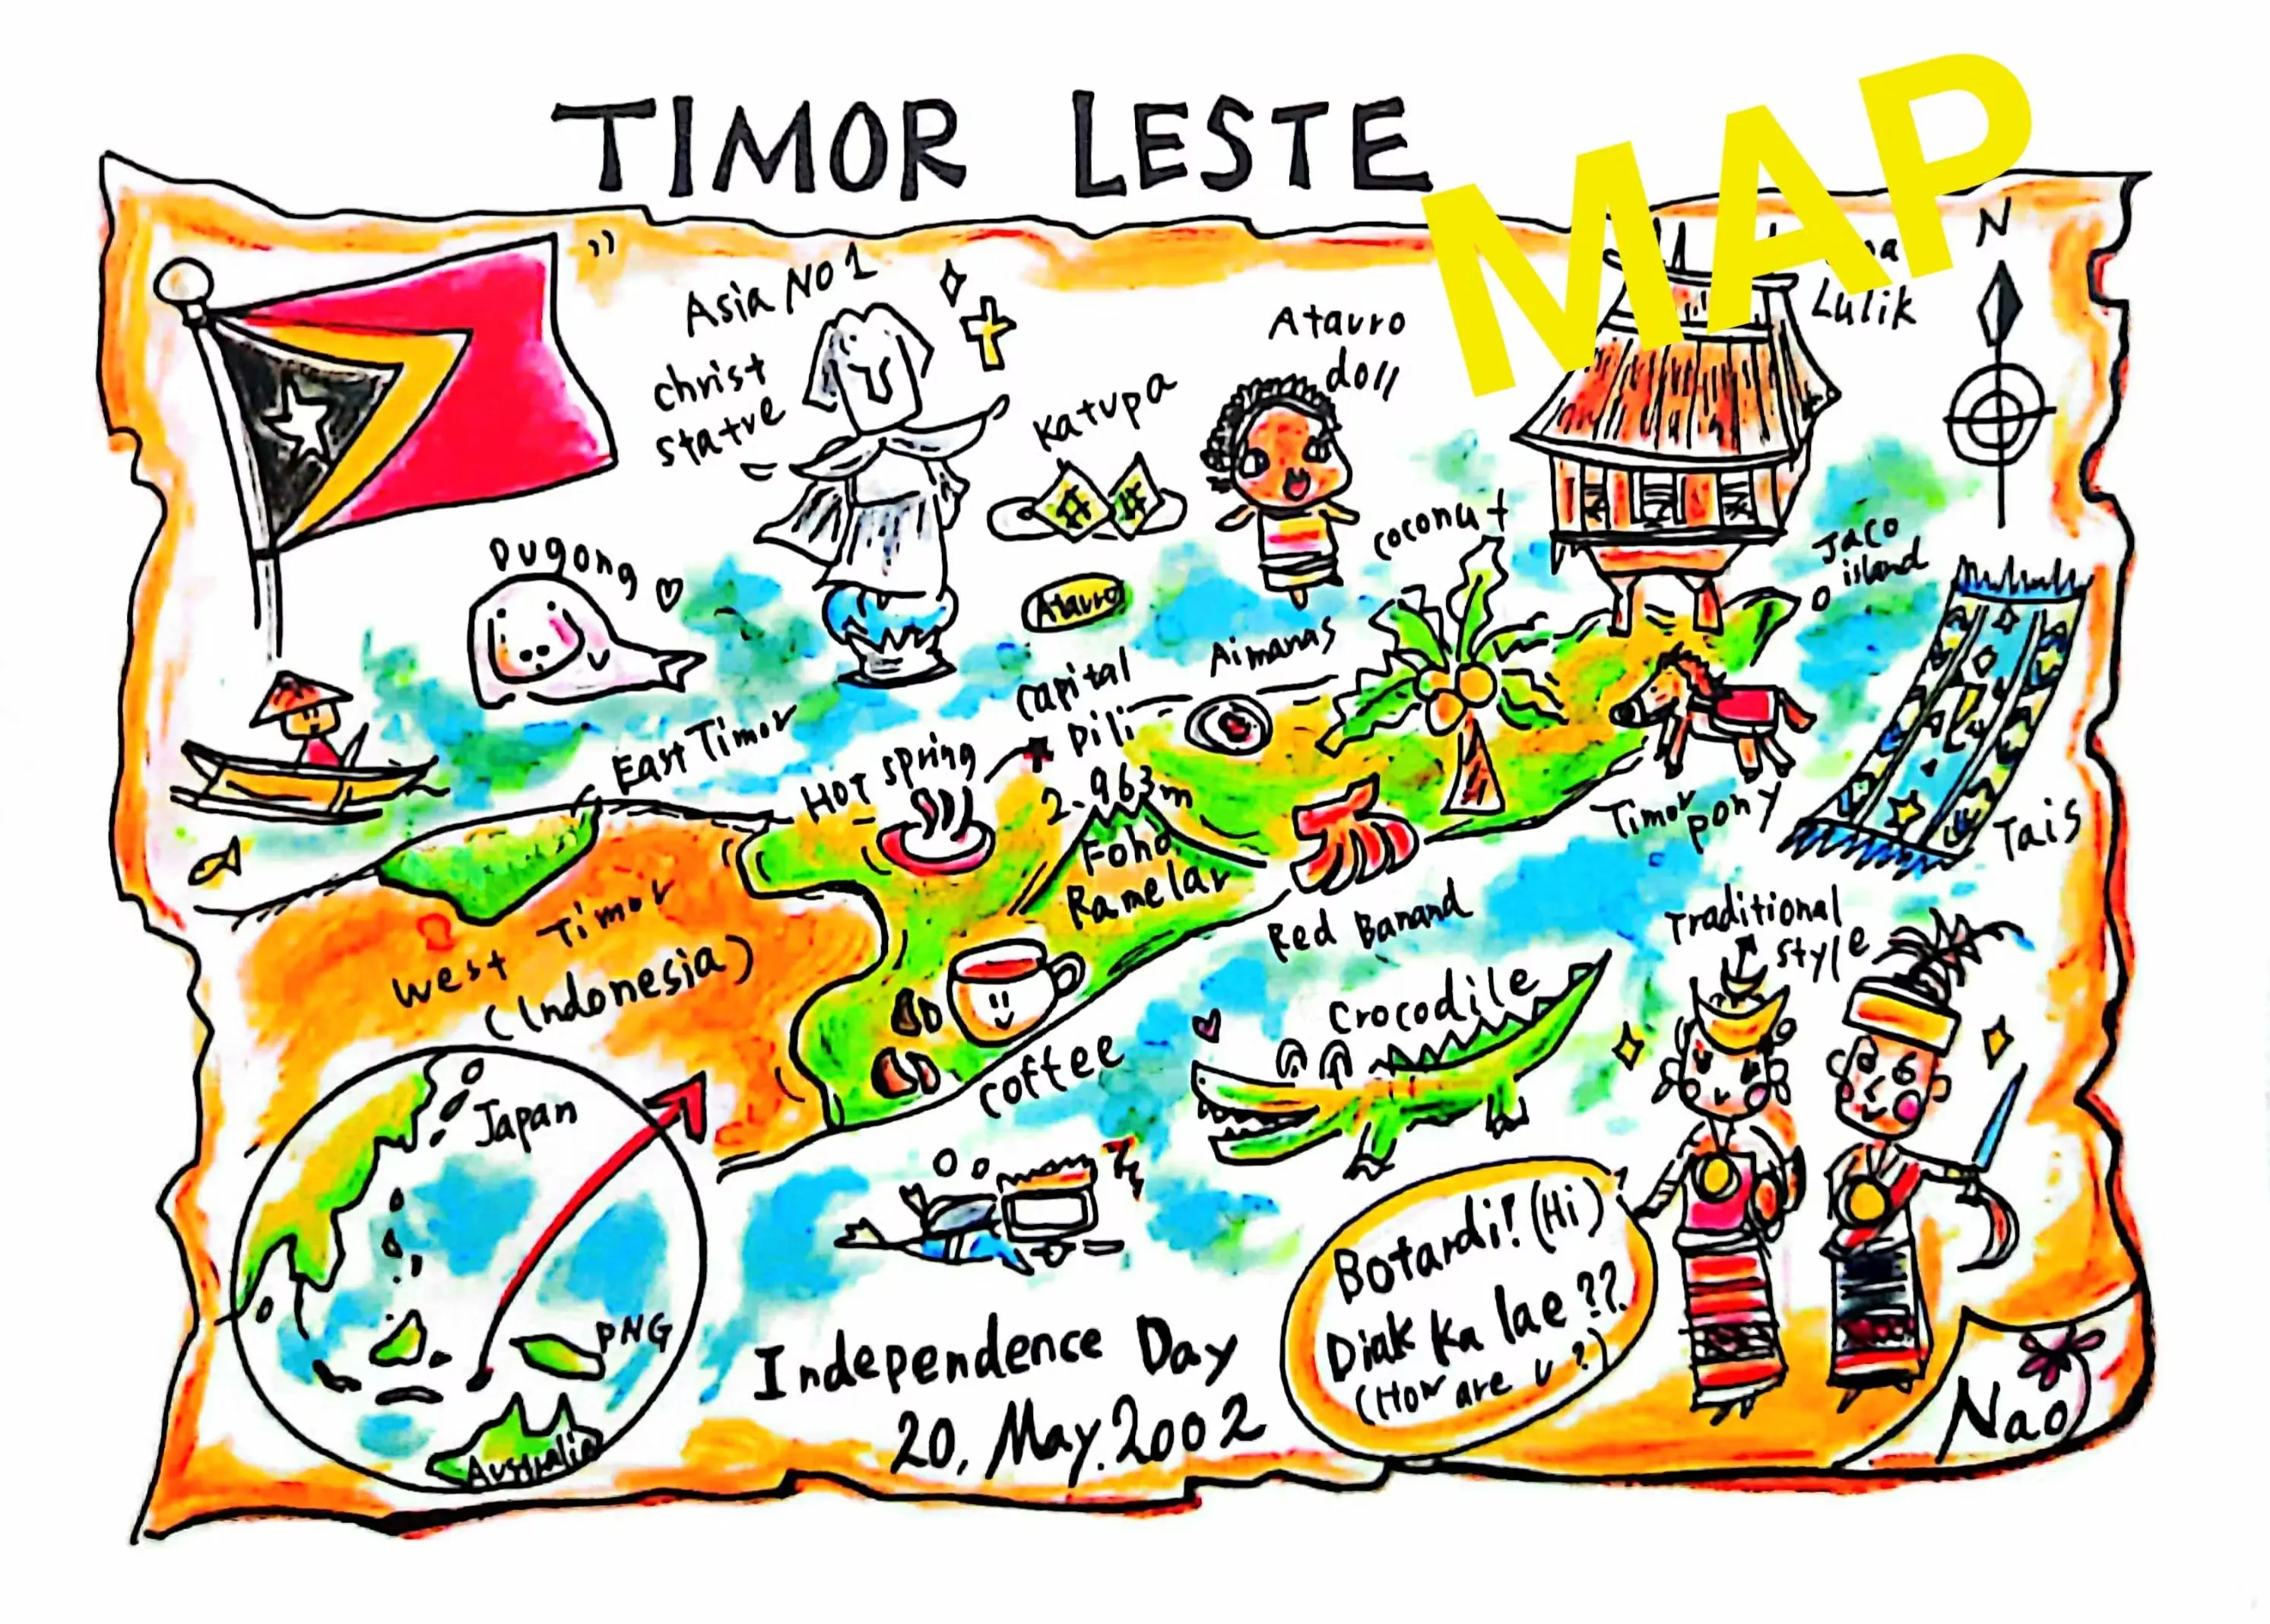 TIMOR LESTE
MAP
N
Asia No 1
christ
statue
Katupa
Atauro
doll
Lulik
Dugong
coconut
Jaco
island
Atauro
Aimanas
capital
Dili
East Timor
Hot spring
2.963m
Foho
Ramelar
Timor pony
Tais
West Timor
(Indonesia)
Red Banand
Traditional
style
coffee
Crocodile
Japan
PNG
Australia
Independence Day
20, May. 2002
Botardi! (Hi)
Diak Ka lae??
(How are u?)
Nao